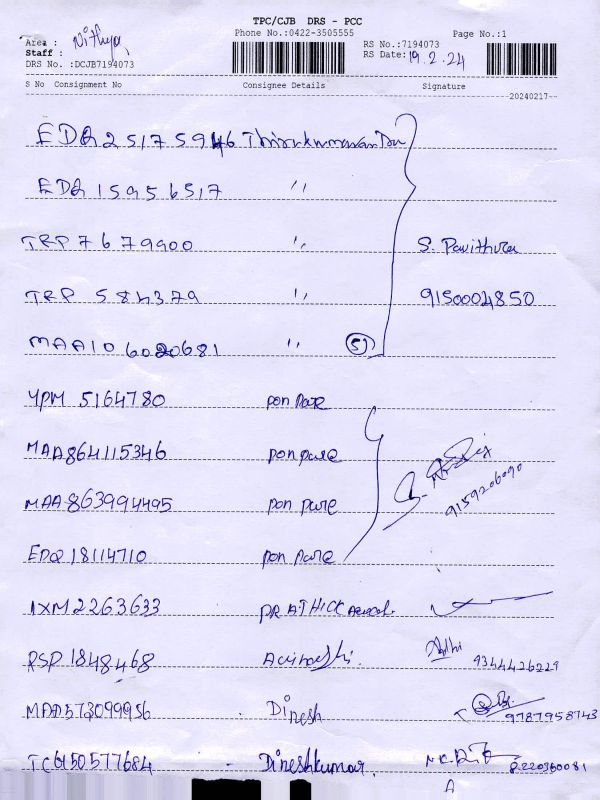 TPC/CJB DRS - PCC
Phone No.:0422-3505555 Page No.:1
Area : Nithya
Staff :
RS No.:7194073
RS Date: 19.2.24
DRS No. :DCJB7194073
S No Consignment No Consignee Details Signature
20240217
EDQ 25175946 Thirukumaran
EDQ 15956517 "
TRP 7679900 " S. Pavithra
TRP 584379 " 9150004850
MAA10 6020681 " 5)
YPM 5164780 pon pure
MAA864115346 pon pure
MAA863994495 pon pure 9159206090
EDQ 18114710 pon pure
IXM2263633 PRATHICK
RSP 1848468 Avinashi 9344426229
MAA573099956 Dinesh 9787958743
TC6150577684 - Dineshkumar 8220360081
A